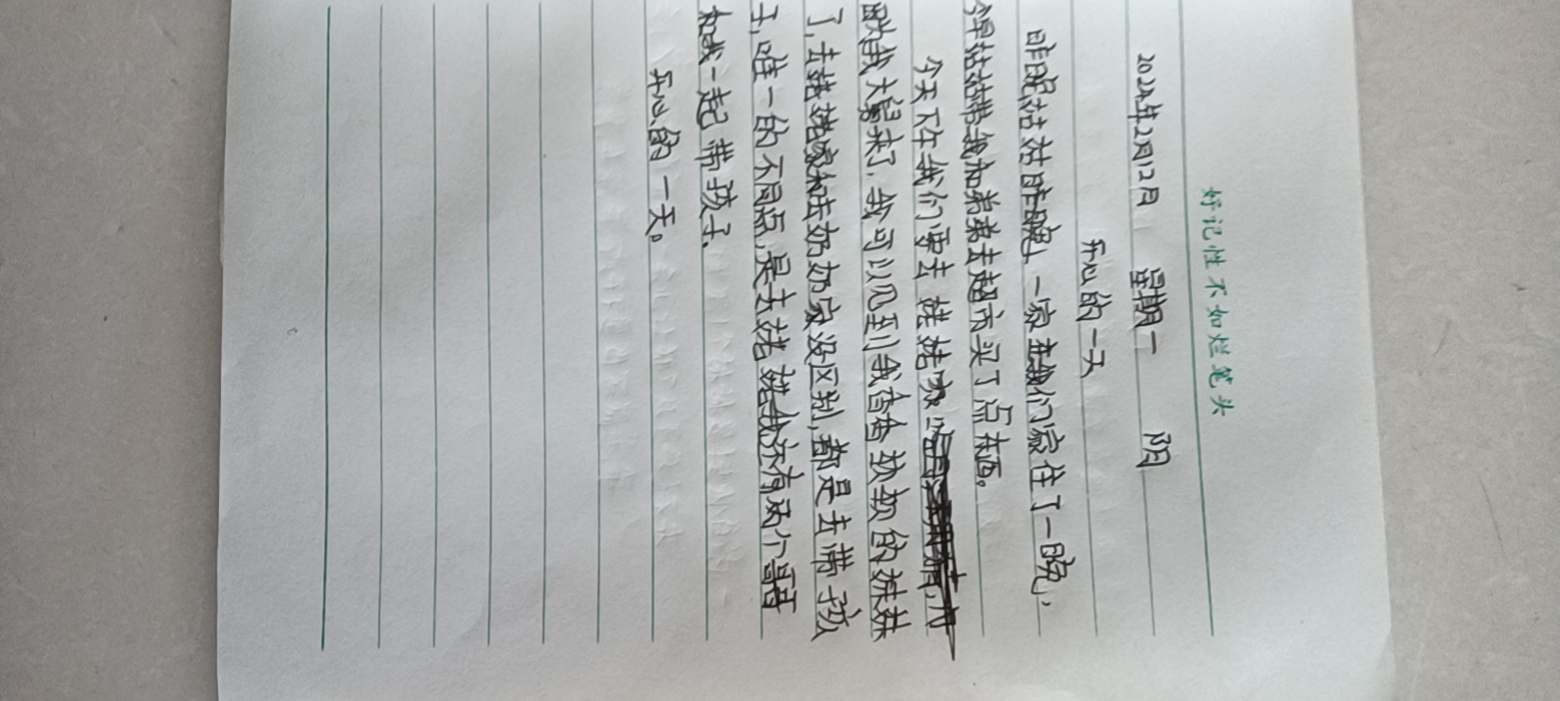 好记性不如烂笔头
2024年2月12日 星期一 阴
开心的一天
昨晚姑姑昨晚,一家在我们家住了一晚,
今早姑姑带我和弟弟去超市买了点东西。
今天下午我们要去姥姥家
我大舅来了,我可以见到我香香软软的妹妹
了,去姥姥家和去奶奶家没区别,都是去带孩
子,唯一的不同点,是去姥姥我还有两个哥哥
和我一起带孩子。
开心的一天。